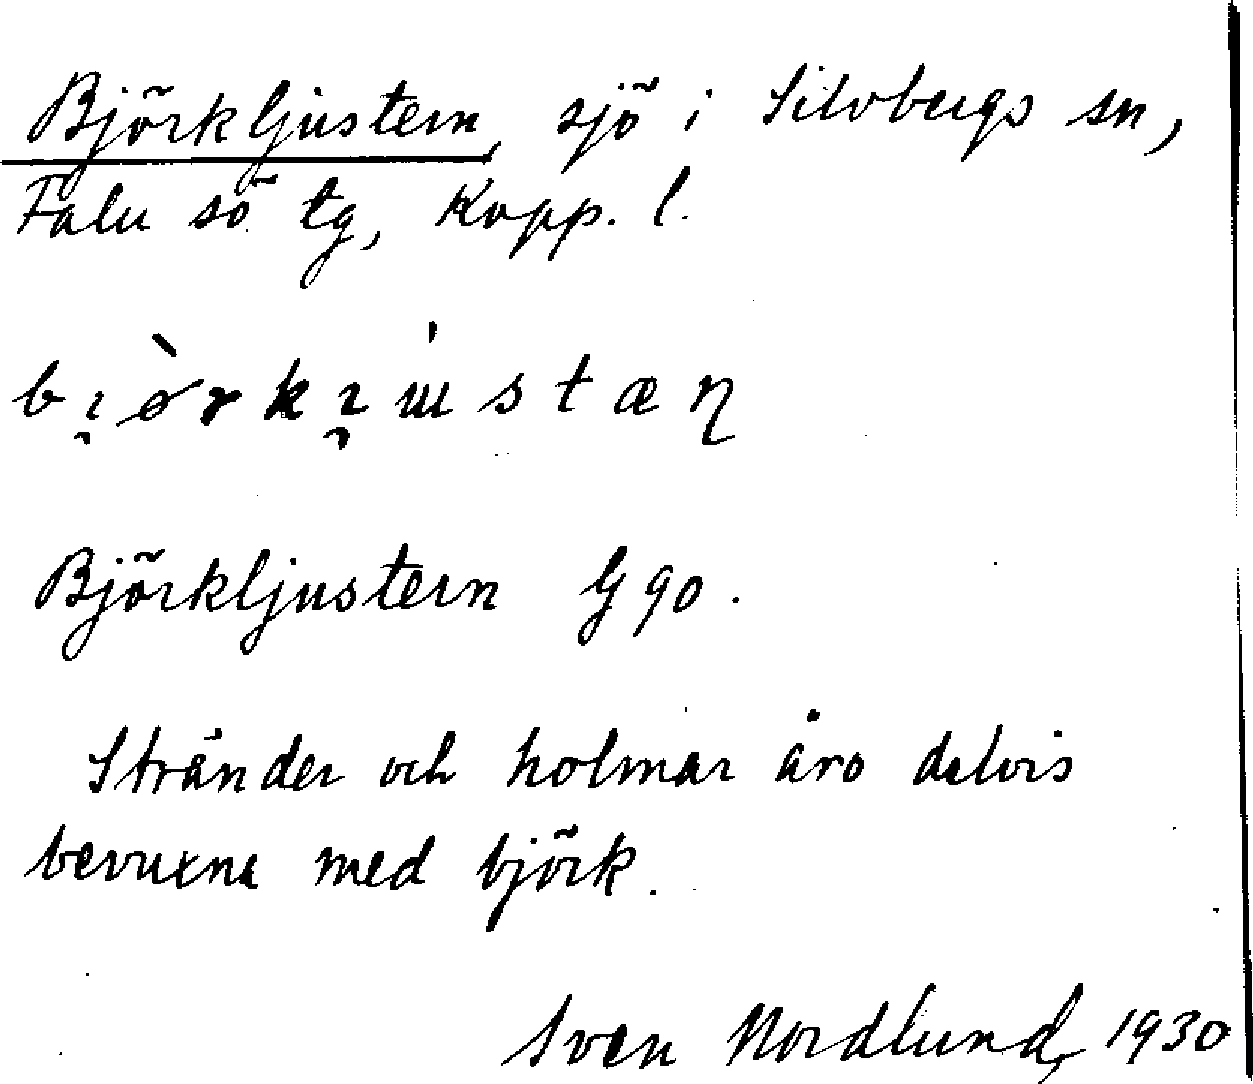 Björkljustern, sjö i Silvbergs sn,
Falu sö tg, Kopp. l.
Björkljustern G 90.
Stränder och holmar äro delvis
bevuxna med björk.
Sven Nordlund, 1930